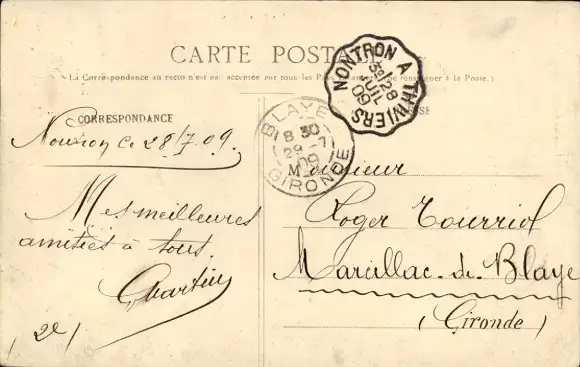 CARTE POSTALE
(La Correspondance au recto n'est pas acceptée par tous les Pays
à la Poste.)
CORRESPONDANCE
Nontron Ce 28/7.09.
Mes meilleures
amitiés à tous.
(2e)
NONTRON A THIVIERS
3o
28
JUIL
09
BLAYE
8 30
29 -7
09
GIRONDE
Monsieur
Roger Tourriol
Marcillac-de-Blaye
(Gironde)